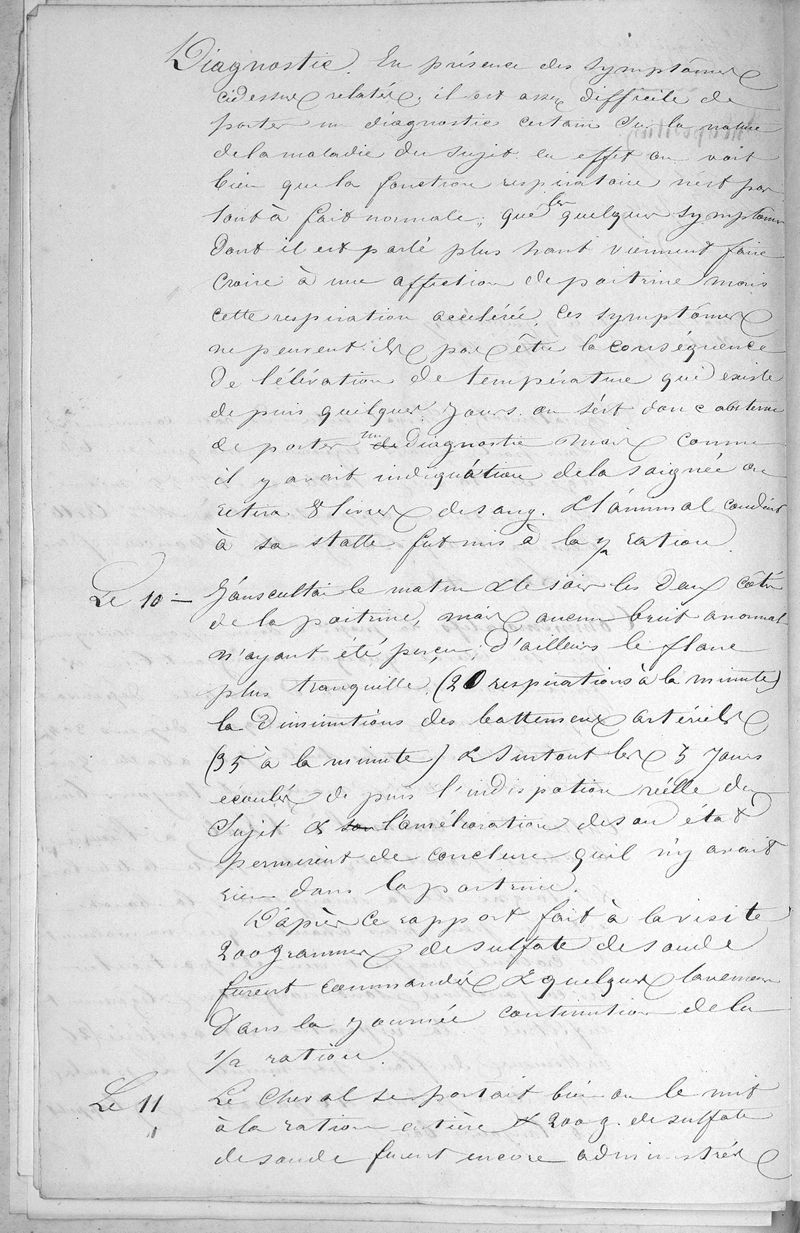 Diagnostic. En présence des symptômes
cidessus relatés, il est assez difficile de
porter un diagnostic certain sur la nature
de la maladie du sujet en effet on voit
bien que la fonction respiratoire n'est pas
tout à fait normale, que les quelques symptômes
dont il est parlé plus haut viennent faire
croire à une affection de poitrine mais
cette respiration accélérée, ces symptômes
ne peuvent ils pas être la conséquence
de l'élévation de température qui existe
depuis quelques jours. on s'est donc abstenu
de porter un diagnostic mais comme
il y avait indiquation de la saignée on
retira 8 livres de sang. & l'animal conduit
à sa stalle fut mis à la ½ ration.
Le 10 – J'auscultai le matin & le soir les deux côtés
de la poitrine, mais aucun bruit anormal
n'ayant été perçu; d'ailleurs le flanc
plus tranquille (20 respirations à la minute)
la diminutions des battements artériels
(35 à la minute) & surtout les 3 jours
écoulés depuis l'indispotion réelle du
sujet & l'amélioration de son état
permirent de conclure qu'il n'y avait
rien dans la poitrine.
D'après ce rapport fait à la visite
200 grammes de sulfate de soude
furent commandés & quelques lavements
dans la journée continution de la
1/2 ration.
Le 11 Le cheval se portait bien on le mit
à la ration entière & 200 g. de sulfate
de soude furent encore administrés